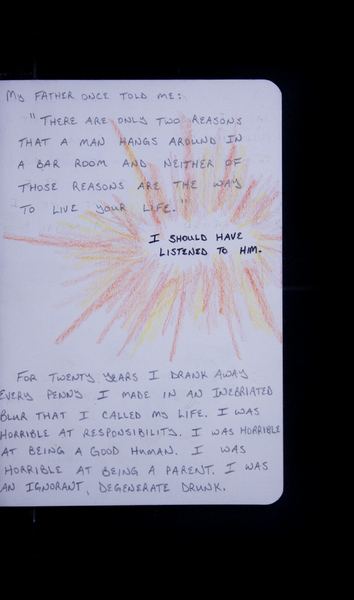 My FATHER ONCE TOLD ME:
"THERE ARE ONLY TWO REASONS
THAT A MAN HANGS AROUND IN
A BAR ROOM AND NEITHER OF
THOSE REASONS ARE THE WAY
TO LIVE YOUR LIFE."
I SHOULD HAVE
LISTENED TO HIM.
FOR TWENTY YEARS I DRANK AWAY
EVERY PENNY I MADE IN AN INEBRIATED
BLUR THAT I CALLED MY LIFE. I WAS
HORRIBLE AT RESPONSIBILITY. I WAS HORRIBLE
AT BEING A GOOD HUMAN. I WAS
HORRIBLE AT BEING A PARENT. I WAS
AN IGNORANT, DEGENERATE DRUNK.